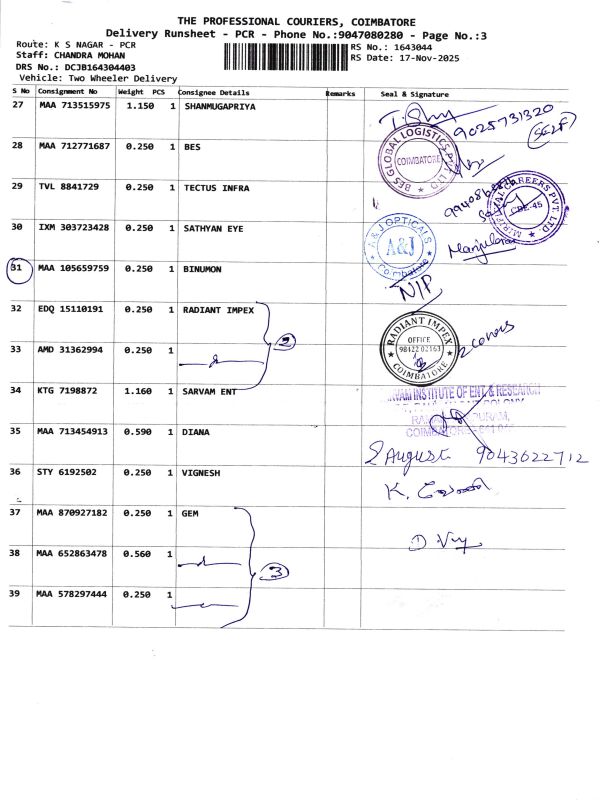 THE PROFESSIONAL COURIERS, COIMBATORE
Delivery Runsheet - PCR - Phone No.:9047080280 - Page No.:3
Route: K S NAGAR - PCR
RS No.: 1643044
Staff: CHANDRA MOHAN
RS Date: 17-Nov-2025
DRS No.: DCJB164304403
Vehicle: Two Wheeler Delivery
S No Consignment No Weight PCS Consignee Details Remarks Seal & Signature
27 MAA 713515975 1.150 1 SHANMUGAPRIYA
9025731320
(SELF)
28 MAA 712771687 0.250 1 BES
BES GLOBAL LOGISTICS PVT. LTD
COIMBATORE
29 TVL 8841729 0.250 1 TECTUS INFRA
CAREERS PVT. LTD
CBE-45
30 IXM 303723428 0.250 1 SATHYAN EYE
A & J OPTICALS
A&J
Coimbatore
31 MAA 105659759 0.250 1 BINUMON
N/P
32 EDQ 15110191 0.250 1 RADIANT IMPEX
RADIANT IMPEX
OFFICE
98422 02163
COIMBATORE
2 covers
33 AMD 31362994 0.250 1
2
34 KTG 7198872 1.160 1 SARVAM ENT
INSTITUTE OF ENT & RESEARCH
35 MAA 713454913 0.590 1 DIANA
August 9043622712
36 STY 6192502 0.250 1 VIGNESH
37 MAA 870927182 0.250 1 GEM
38 MAA 652863478 0.560 1
3
39 MAA 578297444 0.250 1